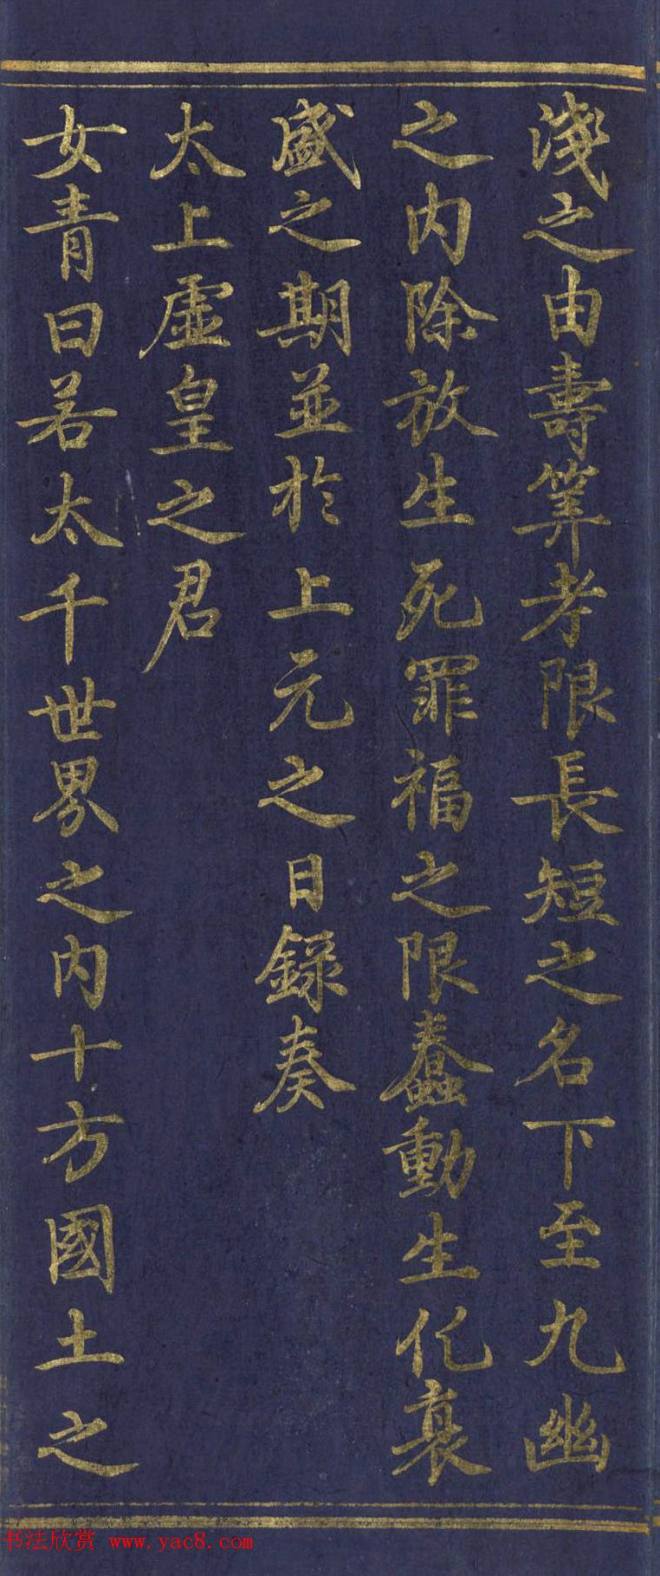 淺之由壽筭考限長短之名下至九幽
之内除放生死罪福之限蠢動生化衰
盛之期並於上元之日録奏
太上虛皇之君
女青曰若太千世界之内十方國土之
书法欣赏 www.yac8.com